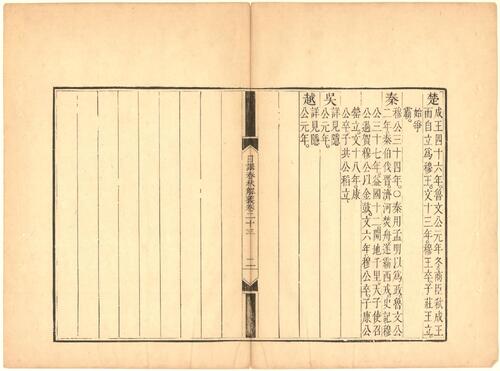 楚 成王四十六年。魯文公元年冬商臣弑成王
而自立爲穆王。文十三年。穆王卒。子莊王立。
始爭
霸。
秦 穆公三十四年。○秦用孟明以爲政。魯文公
二年秦伯伐晉濟河焚舟遂霸西戎。史記穆
公三十七年。益國十二。開地千里。天子使召
公過賀穆公以金鼓。文六年穆公卒。子康公
罃立。文十八年康
公卒。子共公稻立。
吳 詳見隱
公元年。
越 詳見隱
公元年。
日講春秋解義卷二十三 二